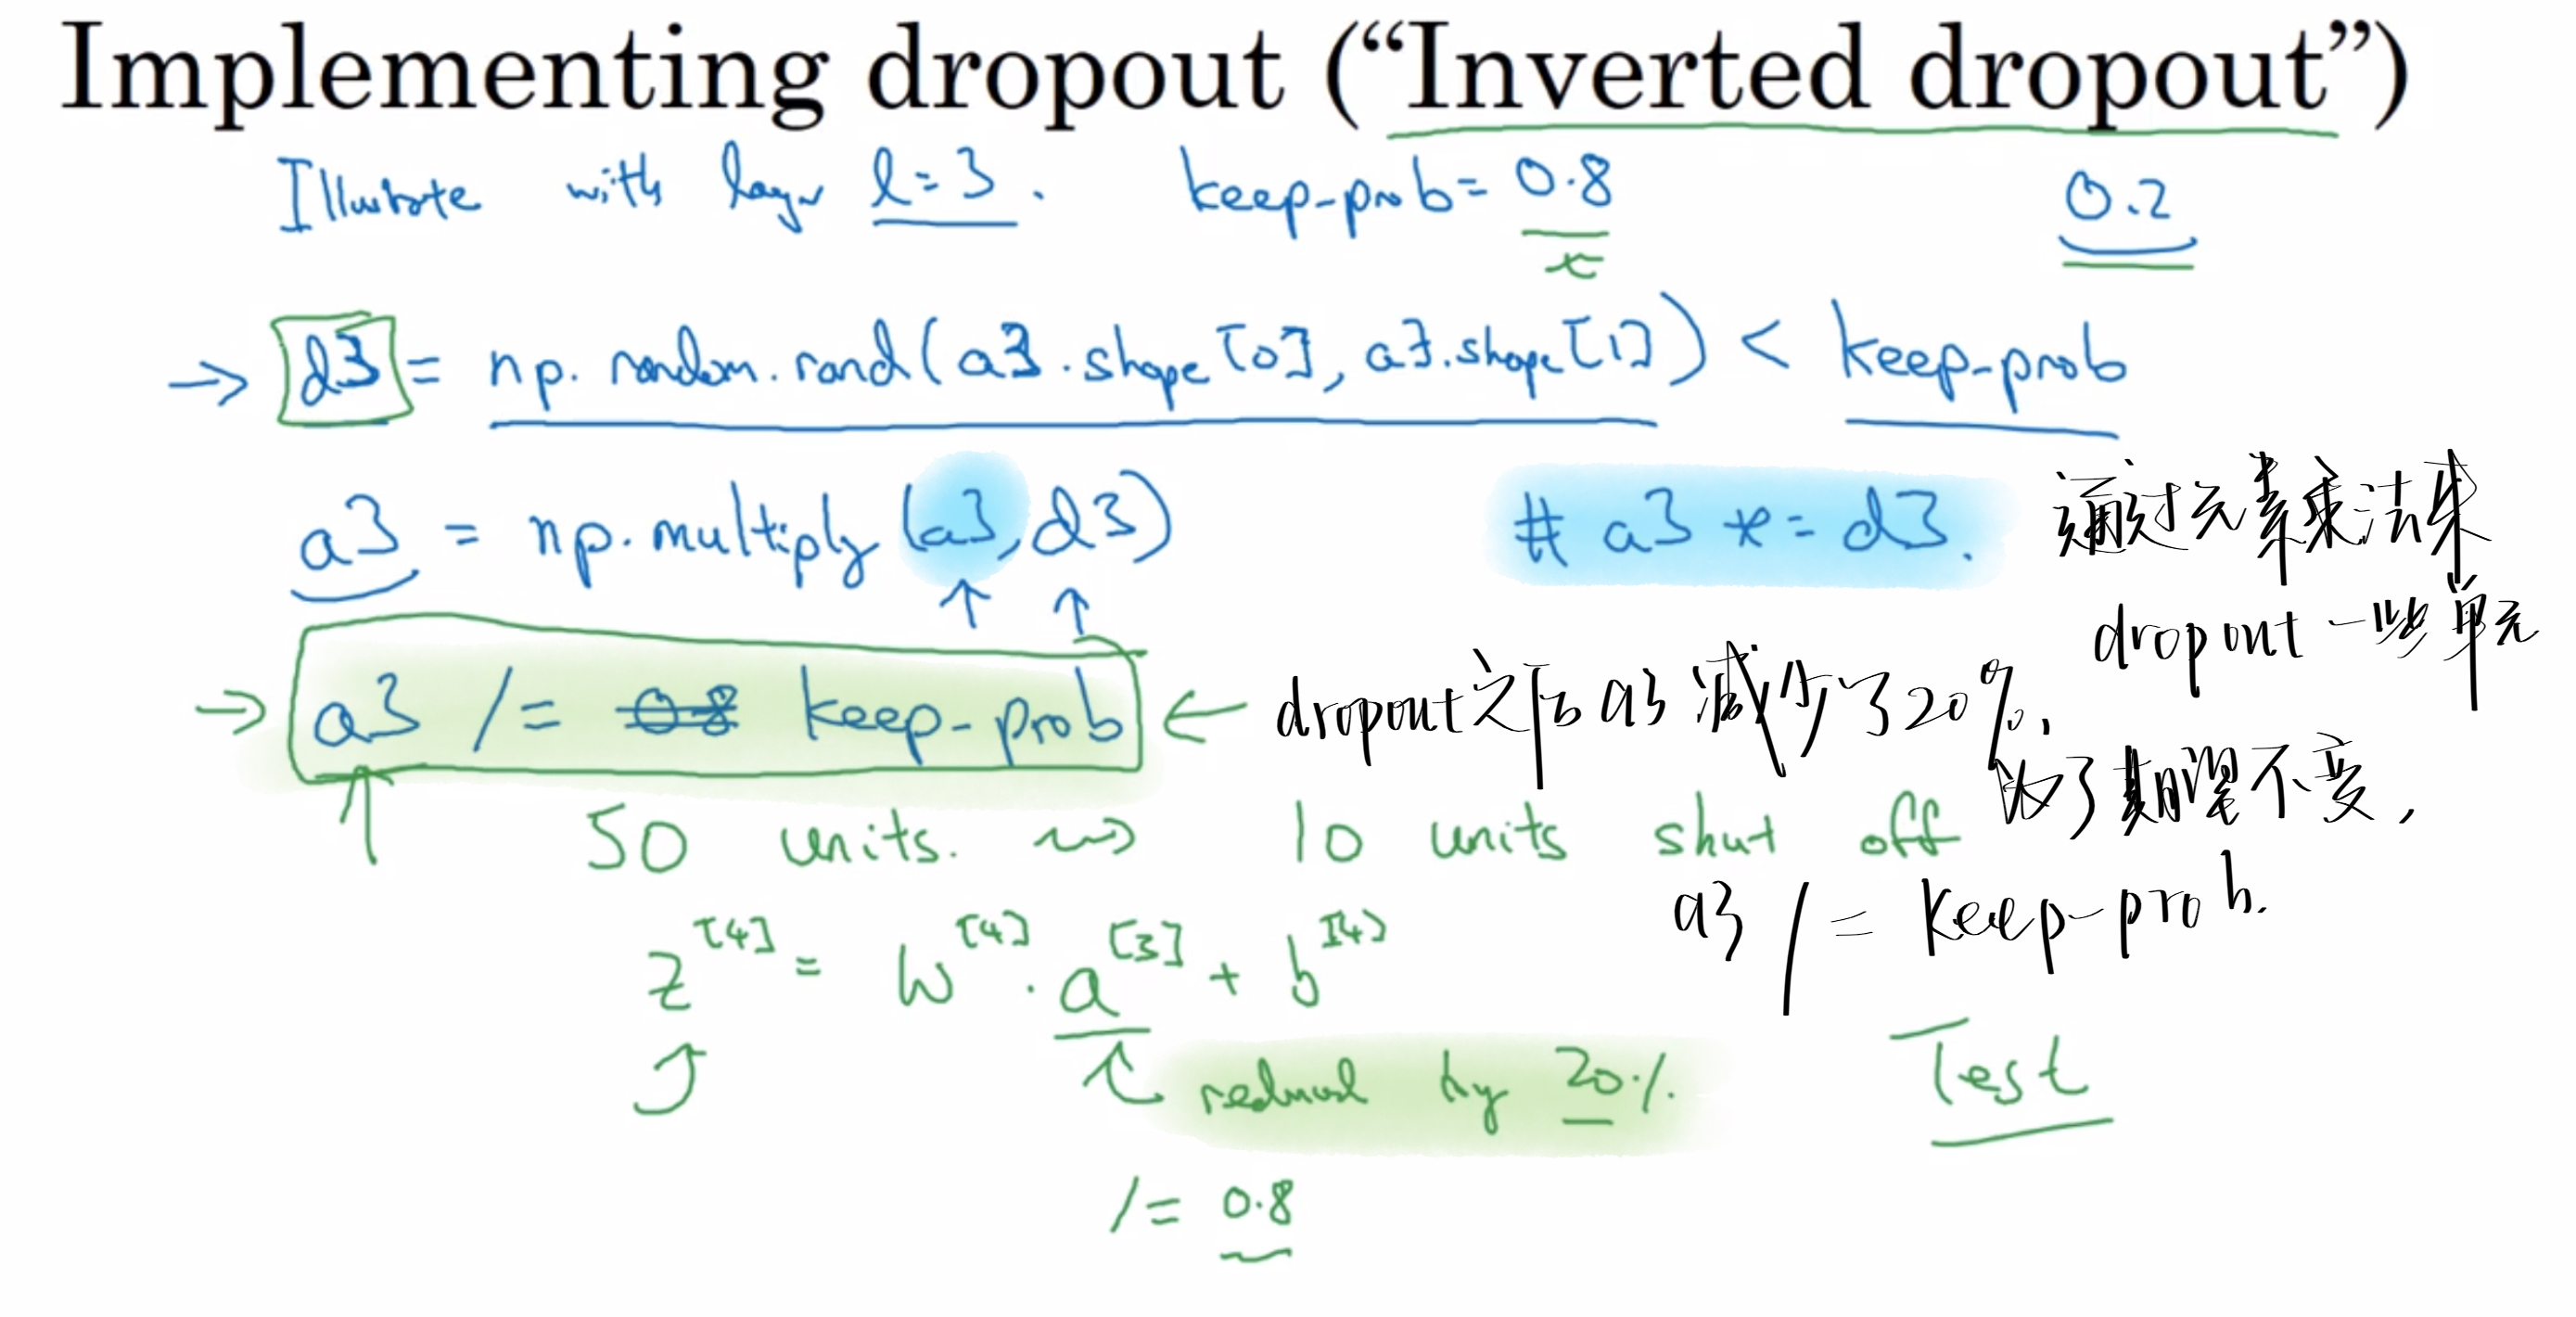 Implementing dropout (“Inverted dropout”)
Illustrate with layer l=3. keep-prob= 0.8 0.2
→ d3 = np.random.rand(a3.shape[0], a3.shape[1]) < keep-prob
a3 = np.multiply(a3,d3) # a3 *= d3.
通过元素乘法来
dropout 一些单元
→ a3 /= 0.8 keep-prob ← dropout之后 a3 减少了20%,
为了期望不变,
a3 /= keep-prob.
50 units. ⇝ 10 units shut off
z[4] = w[4] . a[3] + b[4]
reduced by 20%.
Test
/= 0.8